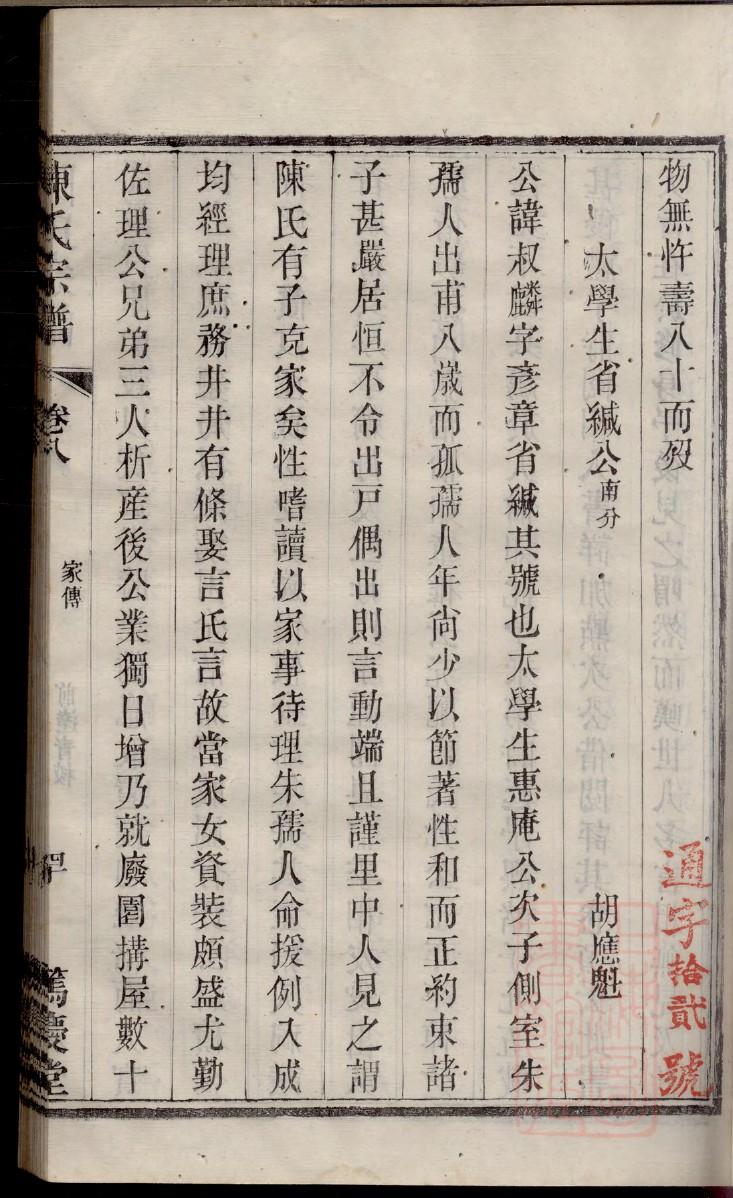 物無忤壽八十而歿
太學生省緘公南分 胡應魁
公諱叔麟字彥章省緘其號也太學生惠庵公次子側室朱
孺人出甫八歲而孤孺人年尙少以節著性和而正約束諸
子甚嚴居恒不令出戸偶出則言動端且謹里中人見之謂
陳氏有子克家矣性嗜讀以家事待理朱孺人命援例入成
均經理庶務井井有條娶言氏言故當家女資裝頗盛尤勤
佐理公兄弟三人析産後公業獨日增乃就廢園搆屋數十
陳氏宗譜 卷八 家傳 篤慶堂
通字拾貳號